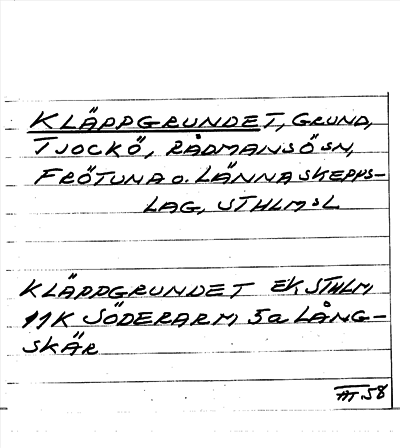 KLÄPPGRUNDET, GRUND,
TJOCKÖ, RÅDMANSÖ SN,
FRÖTUNA O. LÄNNA SKEPPS-
LAG, STHLMS L
KLÄPPGRUNDET EK STHLM
11K SÖDERARM 5a LÅNG-
SKÄR
58